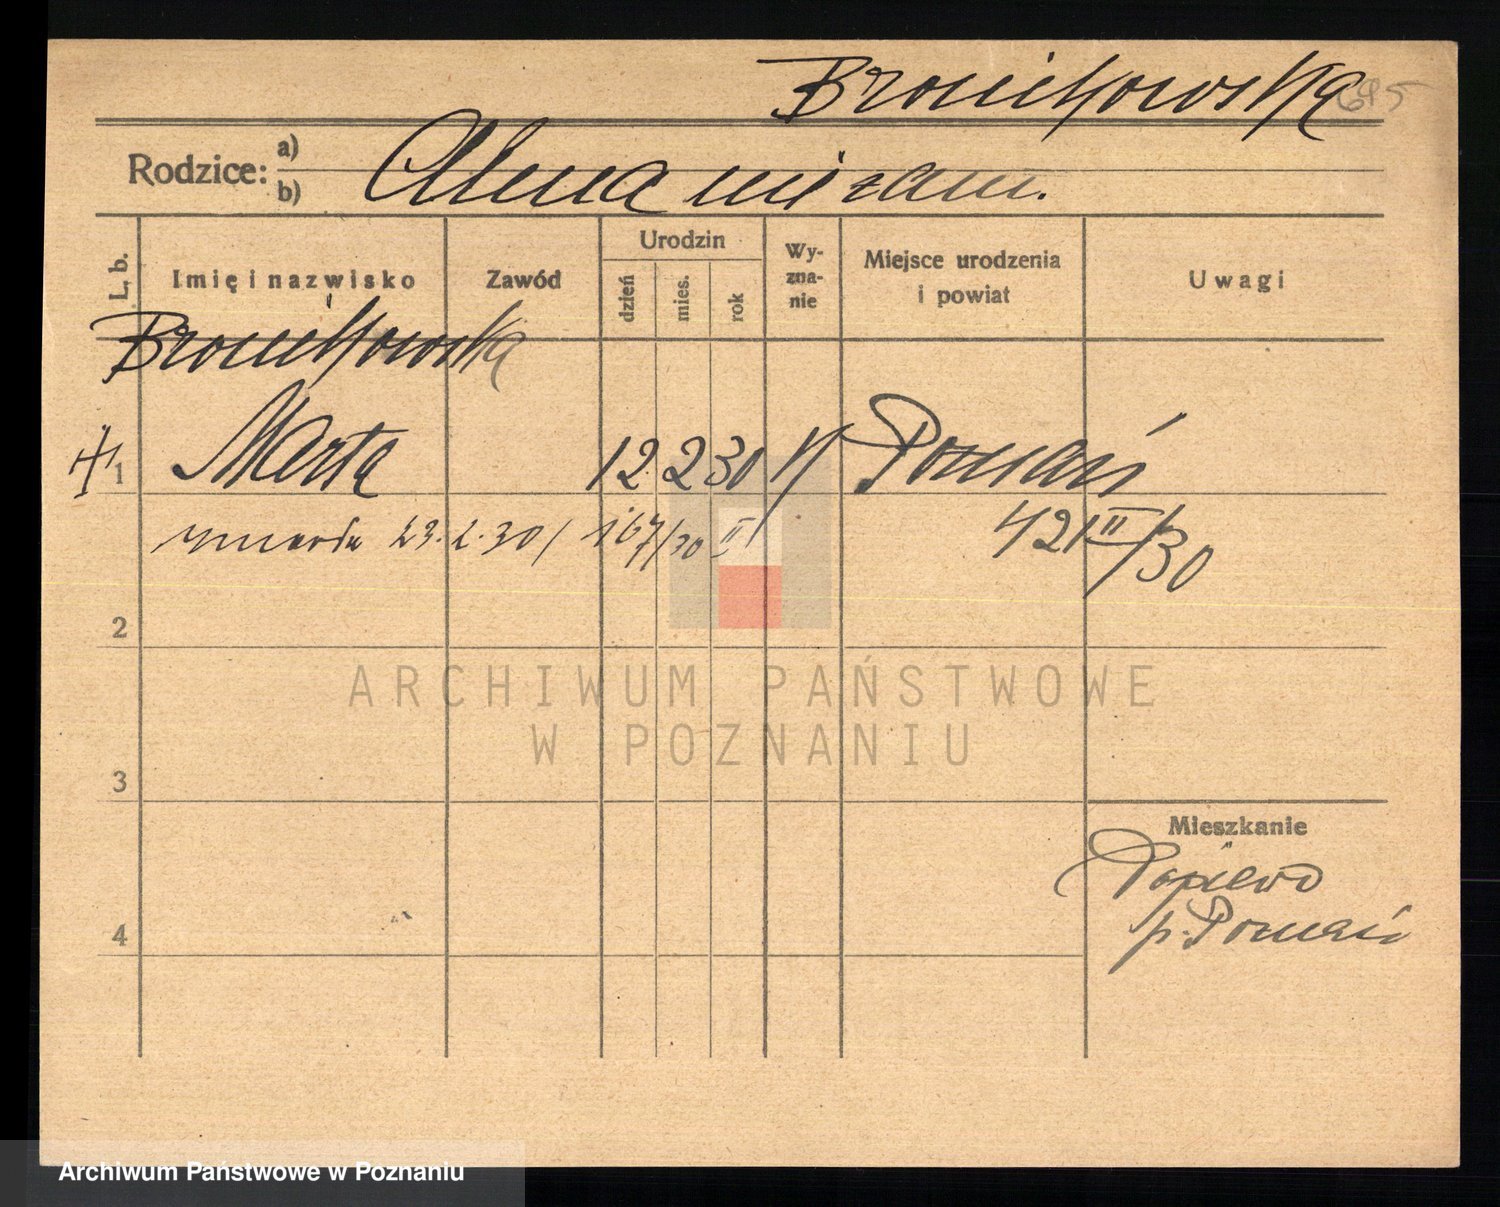 Bronikowska 695
Rodzice: a)
b) Alma niezam.
L. b. Imię i nazwisko Zawód Urodzin dzień mies. rok Wyznanie Miejsce urodzenia i powiat Uwagi
Bronikowska
1 Marta 12 2 30 K Poznań
umarła 23.2.30 / 167/30 II 421 II/30
2
ARCHIWUM PAŃSTWOWE
W POZNANIU
3
Mieszkanie
p. Poznań
4
Archiwum Państwowe w Poznaniu